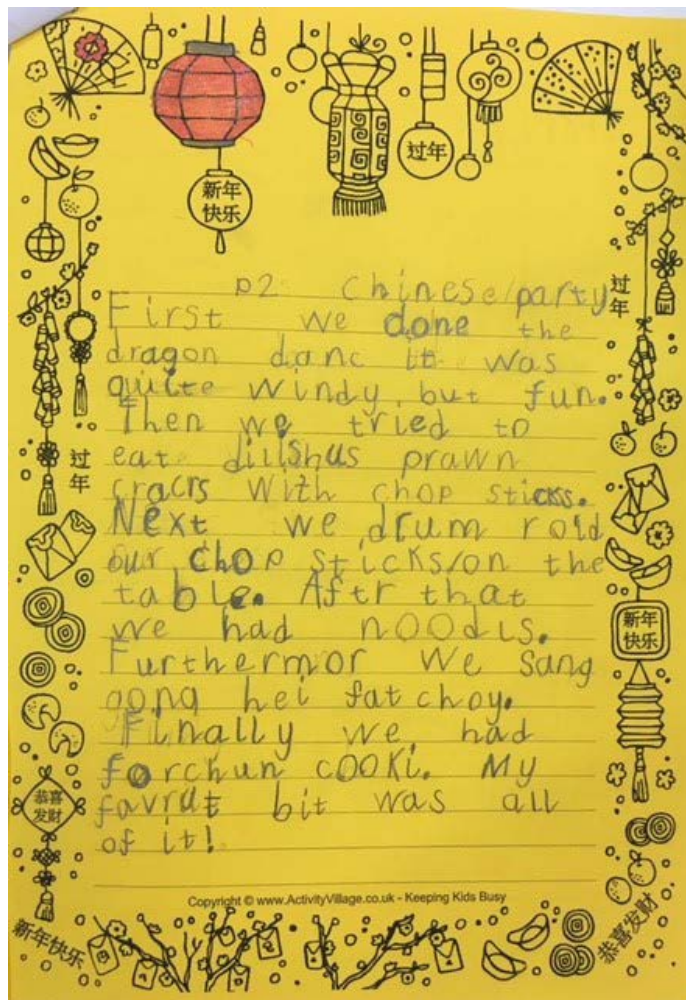 过年
新年
快乐
P2 Chinese/party
First we done the
dragon danc it was
quite windy but fun.
Then we tried to
eat dilishus prawn
cracrs with chop sticks.
Next we drum rold
our chop sticks/on the
table. Aftr that
we had noodls.
Furthermor we sang
gong hei fat choy.
Finally we had
forchun cooki. My
favrut bit was all
of it!
过年
过年
新年
快乐
恭喜
发财
Copyright © www.ActivityVillage.co.uk - Keeping Kids Busy
新年快乐
恭喜发财